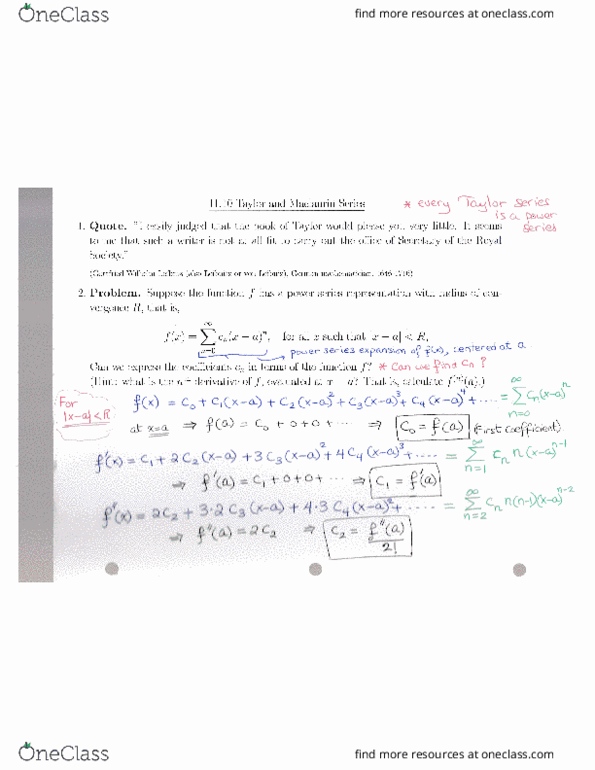 OneClass
find more resources at oneclass.com
11.10 Taylor and Maclaurin Series
* every Taylor series
is a power
series
1. Quote. "I easily judged that the book of Taylor would please you very little. It seems
to me that such a writer is not at all fit to carry out the office of Secretary of the Royal
Society."
(Gottfried Wilhelm Leibniz (also Leibnitz or von Leibniz), German mathematician, 1646-1716)
2. Problem. Suppose the function f has a power series representation with radius of con-
vergence R, that is,
f(x) = ∑_{n=0}^{∞} c_n(x − a)^n, for all x such that |x − a| < R,
power series expansion of f(x), centered at a
Can we express the coefficients c_n in terms of the function f? * Can we find C_n ?
(Hint: what is the n derivative of f, evaluated at x = a? That is, calculate f^(n)(a).)
For
|x-a|<R
f(x) = C₀ + C₁(x-a) + C₂(x-a)² + C₃(x-a)³ + C₄(x-a)⁴ + ..... = ∑_{n=0}^{∞} C_n(x-a)^n
at x=a ⇒ f(a) = C₀ + 0 + 0 + ... ⇒ C₀ = f(a) (First coefficient)
f'(x) = C₁ + 2C₂(x-a) + 3C₃(x-a)² + 4C₄(x-a)³ + .... = ∑_{n=1}^{∞} C_n n(x-a)^{n-1}
⇒ f'(a) = C₁ + 0 + 0 + ... ⇒ C₁ = f'(a)
f''(x) = 2C₂ + 3·2C₃(x-a) + 4·3C₄(x-a)² + ..... = ∑_{n=2}^{∞} C_n n(n-1)(x-a)^{n-2}
⇒ f''(a) = 2C₂ ⇒ C₂ = f''(a)/2!
OneClass
find more resources at oneclass.com